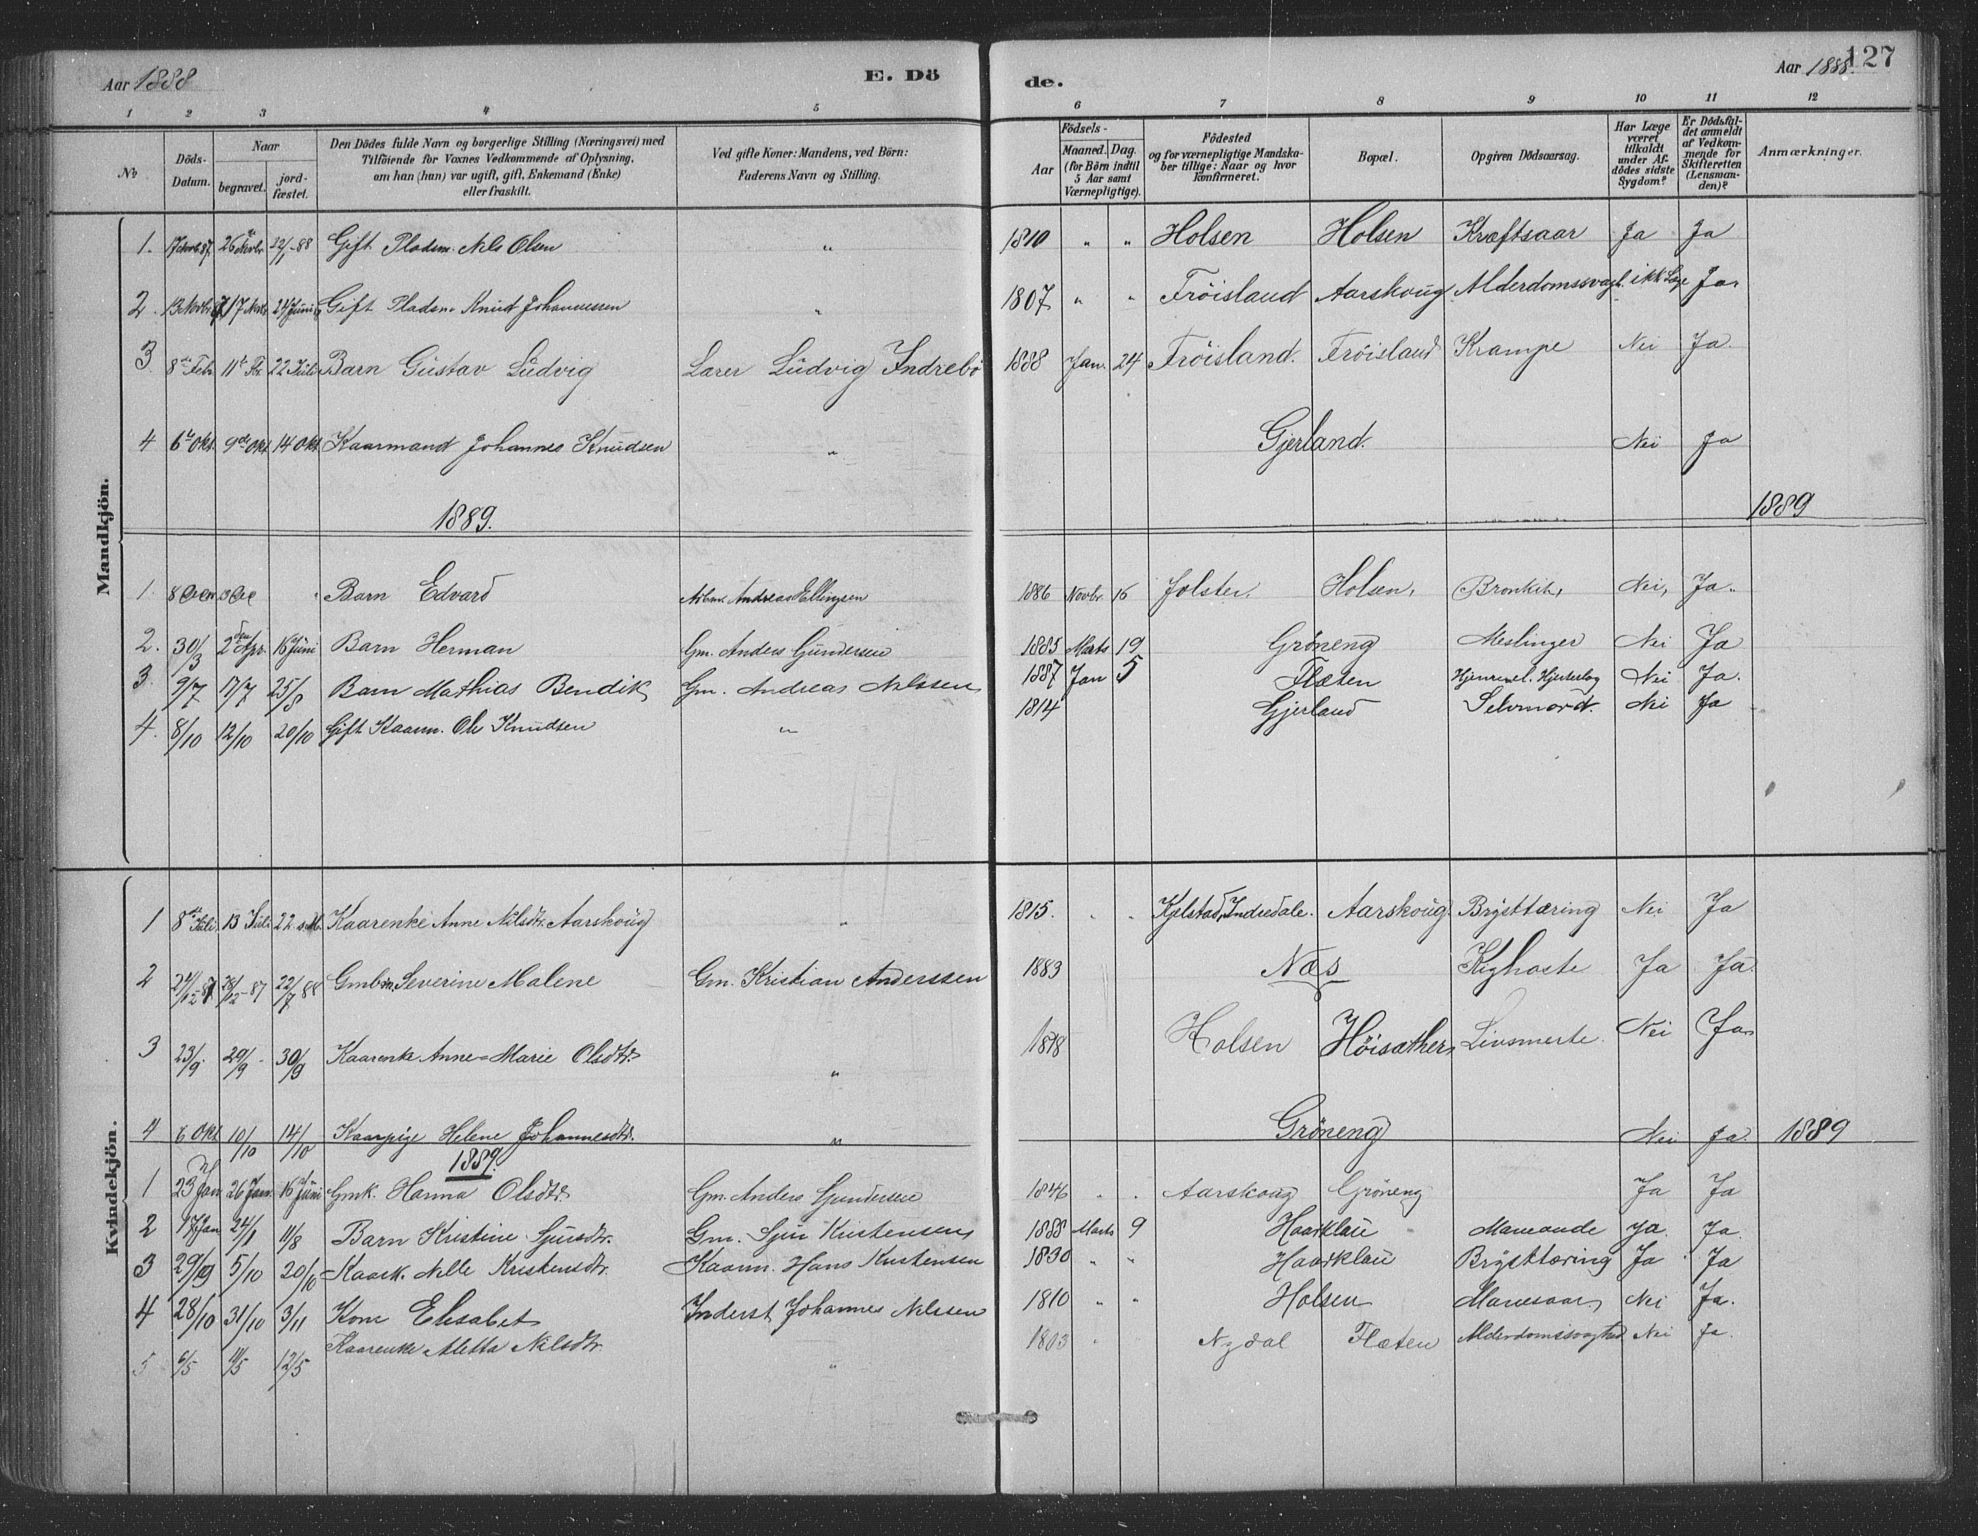 Aar 1888 E. Dö de. Aar 1888. 127
1 2 3 4 5 6 7 8 9 10 11 12
No Döds-Datum. Naar begravet. jord-fæstet. Den Dödes fulde Navn og borgerlige Stilling (Næringsvei) med Tilföiende for Voxnes Vedkommende af Oplysning, om han (hun) var ugift, gift, Enkemand (Enke) eller fraskilt. Ved gifte Koner: Mandens, ved Börn: Faderens Navn og Stilling. Födsels- Aar Maaned. Dag. (for Börn indtil 5 Aar samt Værnepligtige). Födested og for værnepligtige Mandska-ber tillige: Naar og hvor konfirmeret. Bopæl. Opgiven Dödsaarsag. Har Læge været tilkaldt under Af-dödes sidste Sygdom? Er Dödsfal-det anmeldt af Vedkom-mende for Skifteretten (Lensman-den)? Anmærkninger.
Mandkjön.
1. 26 Novbr. 22/1-88 Gift Pladsm. Nils Olsen " 1810 " " Holsen Holsen Kræftsaar Ja Ja
2. 13 Novbr 17 Nvbr 24 Juni Gift Pladsm Knud Johannessen " 1807 " " Fröisland Aarskoug Alderdomssvagh. ikk Læge Ja
3 8de Febr 11te Fe 22 Juli Barn Gustav Ludvig Lærer Ludvig Indrebö 1888 Jan. 24 Fröisland. Fröisland Krampe Nei Ja
4 6te Okt. 9de Okt 14 Okt Kaarmand Johannes Knudsen " Gjerland. Nei Ja
1889. 1889
1. 8 Barn Edvard Andreas Ellingsen 1886 Novbr. 16 Jolster. Holsen. Bronkit. Nei, Ja.
2. 30/3 2den Apr. 16 Juni Barn Herman Gm. Anders Gundersen 1885 Marts 19 Gröneng Meslinger Nei Ja
3. 9/7 17/7 25/8 Barn Mathias Bendik Gm. Andreas Nilssen 1887 Jan 5 Flæten Nei Ja.
4. 8/10 12/10 20/10 Gift Kaarm. Ole Knudsen " 1814 Gjerland Selvmord. Nei Ja
Kvindekjön.
1 8de Juli 13 Juli 22 Kaarenke Anne Nilsdtr. Aarskoug " 1815. " " Kjelstad, Indredale. Aarskoug. Brysttæring Nei Ja
2 24/12-87 28/12-87 22/7 88 Gmbn. Severine Malene Gm. Kristian Anderssen 1883 Næs Kighoste Ja Ja.
3 23/9. 29/9- 30/9 Kaarenk. Anne-Marie Olsdtr. " 1818 Holsen Höisæther Nei Ja
4 6 Okt 10/10 14/10 Kaarpige Helene Johannesdtr. " Gröneng Nei Ja. 1889
1889.
1 23 Jan 26 Jan. 16 Juni Gmk. Hanna Olsdtr. Gm. Anders Gundersen 1846 " " Aarskoug Gröneng Ja Ja
2 17 Jan 24/1 11/8 Barn Kristine Sjursdtr. Gm. Sjur Kristensen 1888 Marts 9 Haarklau Ja. Ja.
3 29/9 5/10 20/10 Kaark. Nille Kristensdtr. Kaarm. Hans Kristensen 1830 " " Haarklau Brysttæring Ja Ja
4 28/10 31/10 3/11 Kone Elisabet Inderst Johannes Nilssen 1810 " " Holsen Mavesaar Nei Ja.
5 6/5 11/5 12/5 Kaarenke Aletta Nilsdtr. " 1803 " Nydal Flæten Alderdomssvaghed Nei Ja.